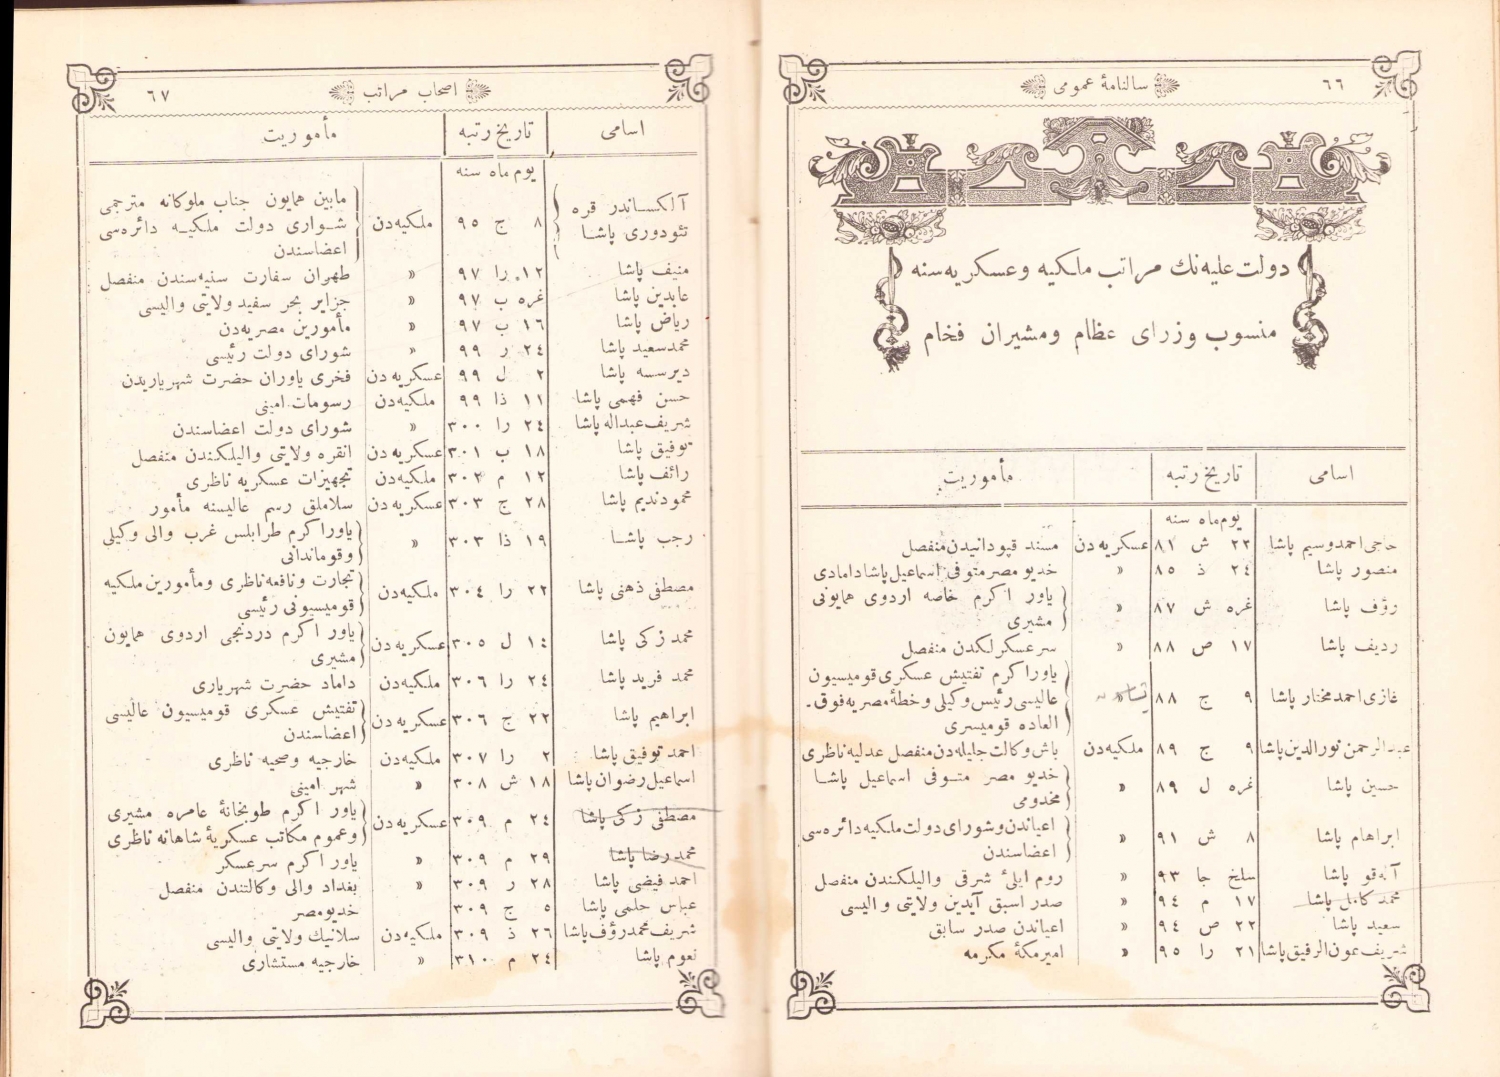 ٦٦
سالنامهٔ عمومی
دولت علیه‌نك مراتب ملكیه و عسكریه‌سنه
منسوب وزرای عظام ومشیران فخام
اسامی تاریخ رتبه مأموریت
یوم ماه سنه
حاجی احمدوسیم پاشا ٢٢ ش ٨١ عسكریه‌دن مسند قپودانیدن منفصل
منصور پاشا ٢٤ ذ ٨٥ « خدیو مصر متوفی اسماعیل پاشا دامادی
رؤف پاشا غره ش ٨٧ « یاور اكرم خاصه اردوی همایونی
مشیری
ردیف پاشا ١٧ ص ٨٨ « سرعسكرلكدن منفصل
غازی احمد مختار پاشا ٩ ج ٨٨ یاور اكرم تفتیش عسكری قومیسیون
عالیسی رئیس وكیلی وخطهٔ مصریه فوق‌
العاده قومیسری
عبدالرحمن نورالدین پاشا ٩ ج ٨٩ ملكیه‌دن باش وكالت جلیله‌دن منفصل عدلیه ناظری
حسین پاشا غره ل ٨٩ « خدیو مصر متوفی اسماعیل پاشا
مخدومی
ابراهام پاشا ٨ ش ٩١ « اعیاندن وشورای دولت ملكیه دائره‌سی
اعضاسندن
آله‌قو پاشا سلخ جا ٩٣ « روم ایلیٔ شرقی والیلكندن منفصل
محمد كامل پاشا ١٧ م ٩٤ « صدر اسبق آیدین ولایتی والیسی
سعید پاشا ٢٢ ص ٩٤ « اعیاندن صدر سابق
شریف عون الرفیق پاشا ٢١ را ٩٥ « امیر مكهٔ مكرمه
اصحاب مراتب
٦٧
اسامی تاریخ رتبه مأموریت
یوم ماه سنه
آلكساندر قره
تئودوری پاشا ٨ ج ٩٥ ملكیه‌دن مابین همایون جناب ملوكانه مترجمی
شورای دولت ملكیه دائره‌سی
اعضاسندن
منیف پاشا ١٢ را ٩٧ « طهران سفارت سنیه‌سندن منفصل
عابدین پاشا غره ب ٩٧ « جزایر بحر سفید ولایتی والیسی
ریاض پاشا ١٦ ب ٩٧ « مأمورین مصریه‌دن
محمد سعید پاشا ٢٤ ر ٩٩ « شورای دولت رئیسی
دیرسه پاشا ٢ ل ٩٩ عسكریه‌دن فخری یاوران حضرت شهریاریدن
حسن فهمی پاشا ١١ ذا ٩٩ ملكیه‌دن رسومات امینی
شریف عبداله پاشا ٢٤ را ٣٠٠ « شورای دولت اعضاسندن
توفیق پاشا ١٨ ب ٣٠١ عسكریه‌دن انقره ولایتی والیلكندن منفصل
رائف پاشا ١٢ م ٣٠٢ ملكیه‌دن تجهیزات عسكریه ناظری
محمود ندیم پاشا ٢٨ ج ٣٠٣ عسكریه‌دن سلاملق رسم عالیسنه مأمور
رجب پاشا ١٩ ذا ٣٠٣ « یاور اكرم طرابلس غرب والی وكیلی
وقوماندانی
مصطفی ذهنی پاشا ٢٢ را ٣٠٤ ملكیه‌دن تجارت ونافعه ناظری ومأمورین ملكیه
قومیسیونی رئیسی
محمد زكی پاشا ١٤ ل ٣٠٥ عسكریه‌دن یاور اكرم دردنجی اردوی همایون
مشیری
محمد فرید پاشا ٢٤ را ٣٠٦ ملكیه‌دن داماد حضرت شهریاری
ابراهیم پاشا ٢٢ ج ٣٠٦ عسكریه‌دن تفتیش عسكری قومیسیون عالیسی
اعضاسندن
احمد توفیق پاشا ٢ را ٣٠٧ ملكیه‌دن خارجیه وصحیه ناظری
اسماعیل رضوان پاشا ١٨ ش ٣٠٨ « شهر امینی
مصطفی زكی پاشا ٢٤ م ٣٠٩ عسكریه‌دن یاور اكرم طوبخانهٔ عامره مشیری
وعموم مكاتب عسكریهٔ شاهانه ناظری
محمد رضا پاشا ٢٩ م ٣٠٩ « یاور اكرم سرعسكر
احمد فیضی پاشا ٢٨ ر ٣٠٩ « بغداد والی وكالتندن منفصل
عباس حلمی پاشا ٥ ج ٣٠٩ خدیو مصر
شریف محمد رؤف پاشا ٢٦ ذ ٣٠٩ ملكیه‌دن سلانیك ولایتی والیسی
نعوم پاشا ٢٤ م ٣١٠ « خارجیه مستشاری